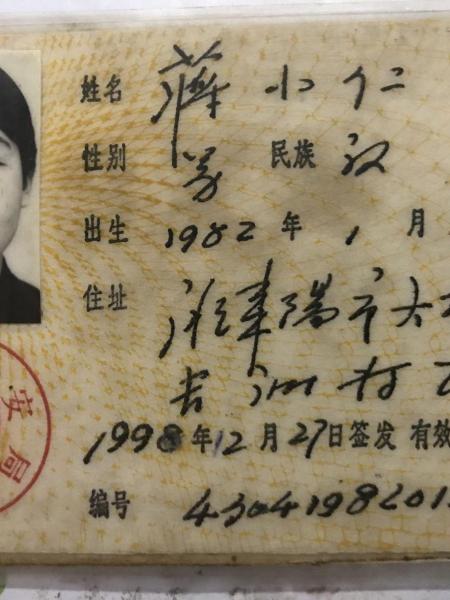 姓名 小仁
性别 男 民族 汉
出生 1982 年 1 月
住址 市大
长洲村
1998年12月27日签发 有效
编号 4304198201
安局